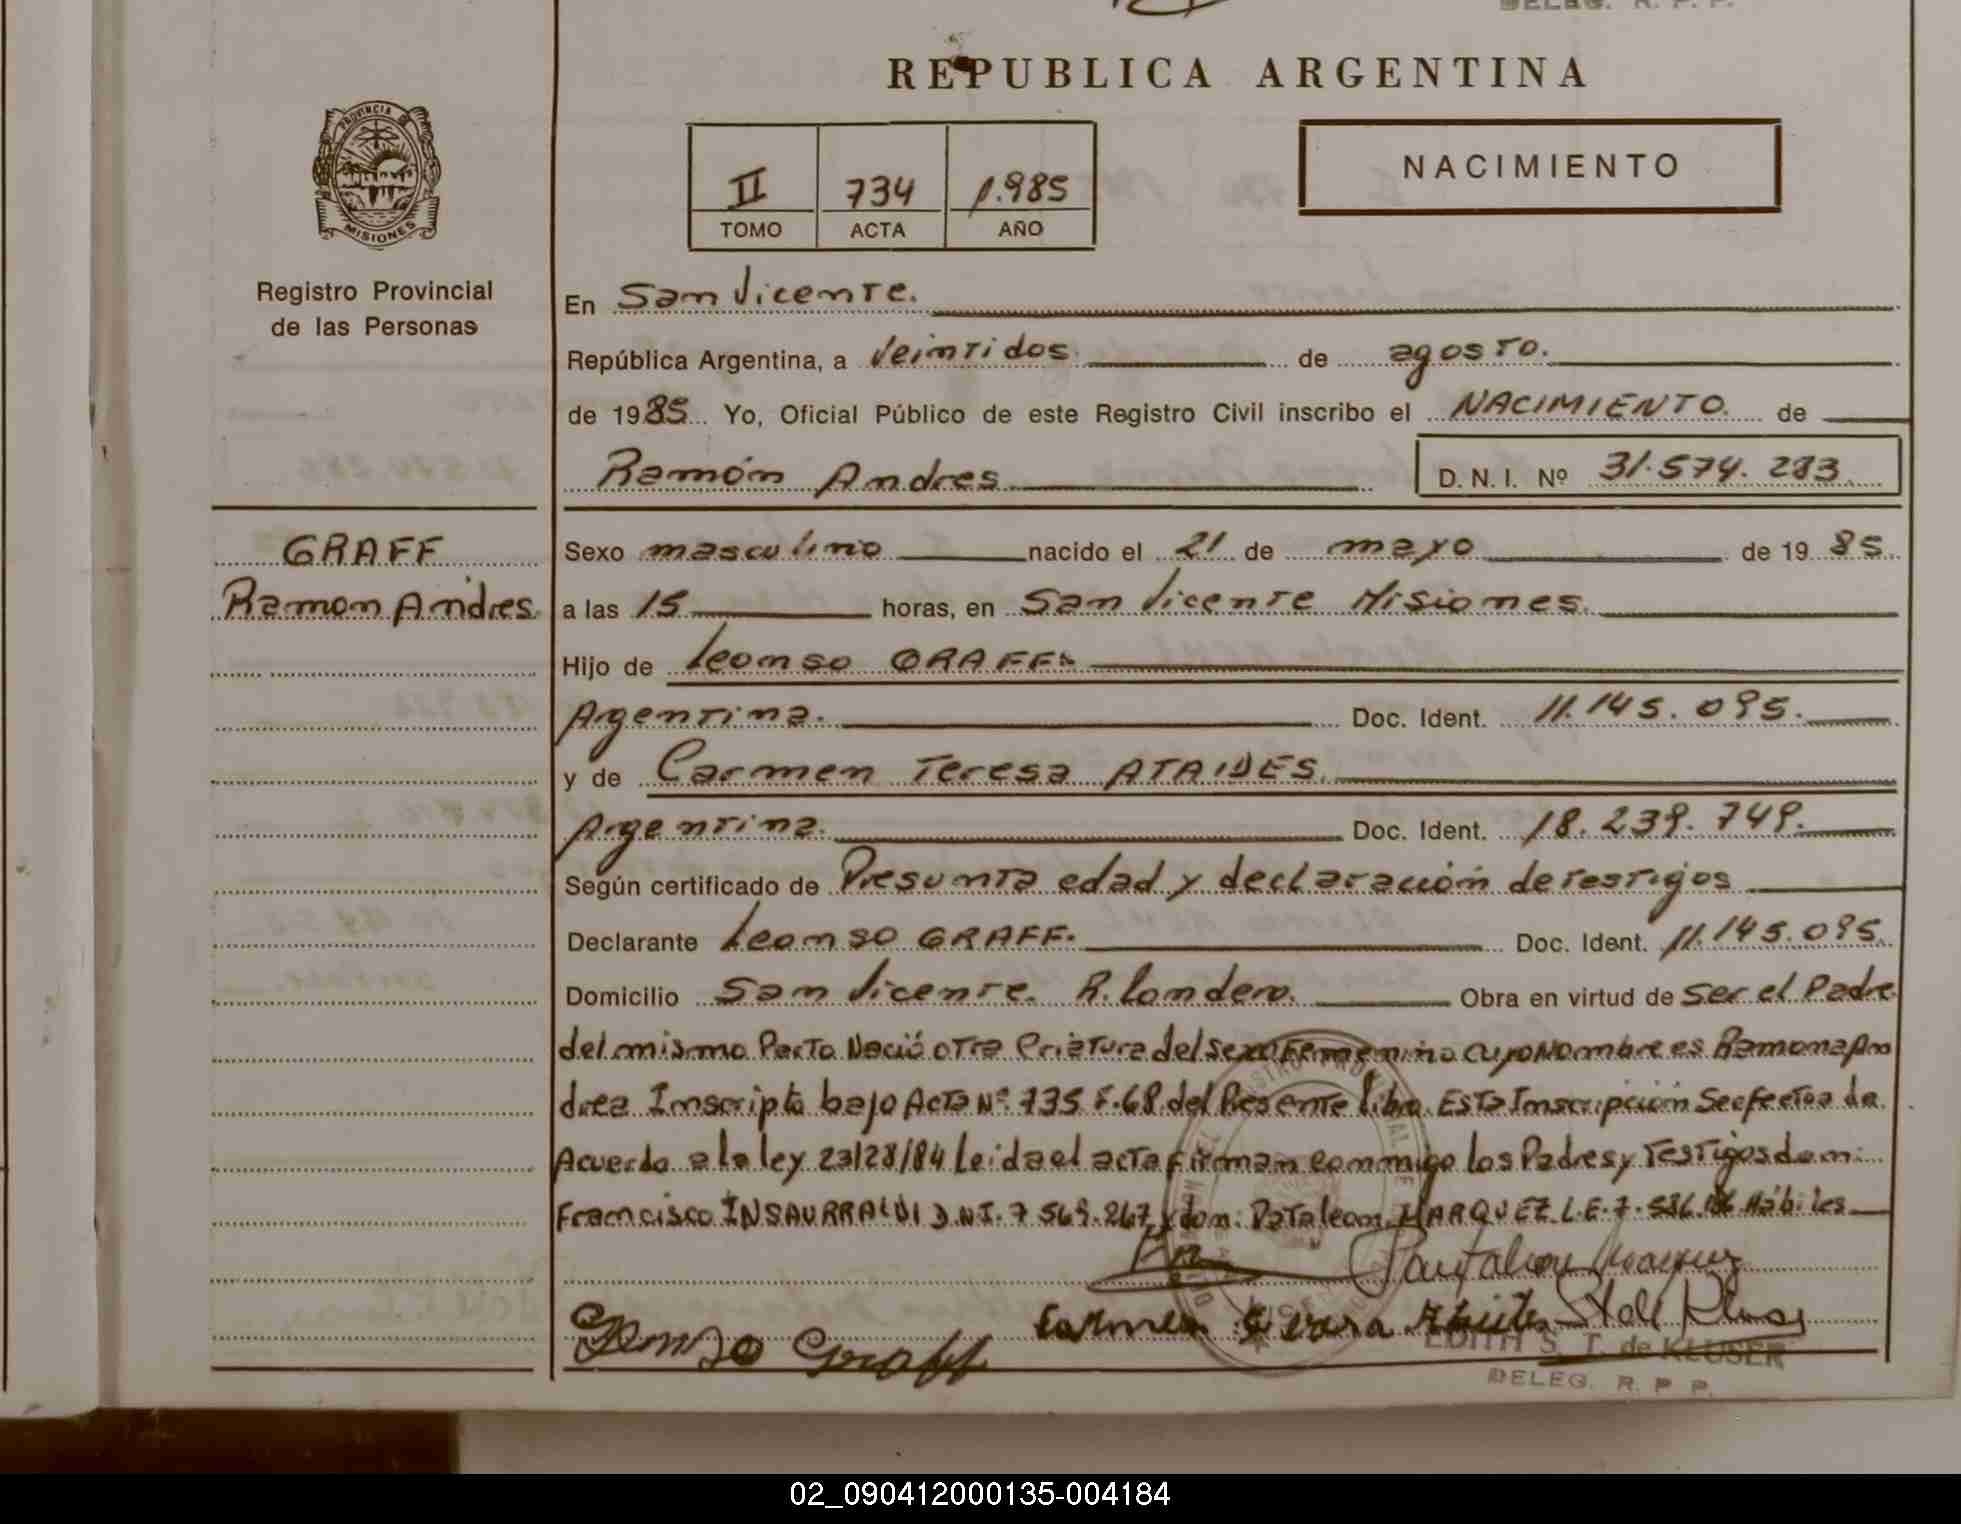 DELEG. R. P. P.
REPUBLICA ARGENTINA
PROVINCIA DE
MISIONES
II 734 1.985
TOMO ACTA AÑO
NACIMIENTO
Registro Provincial
de las Personas
En San Vicente.
República Argentina, a Veintidos de agosto.
de 1985 Yo, Oficial Público de este Registro Civil inscribo el NACIMIENTO. de
Ramón Andres D. N. I. Nº 31.574.283
GRAFF
Ramon Andres
Sexo masculino nacido el 21 de mayo de 1985.
a las 15 horas, en San Vicente Misiones.
Hijo de Leonso GRAFF.
Argentina. Doc. Ident. 11.145.095.
y de Carmen Teresa ATAIDES.
Argentina. Doc. Ident. 18.239.749.
Según certificado de Presunta edad y declaración de testigos
Declarante Leonso GRAFF. Doc. Ident. 11.145.095.
Domicilio San Vicente. R. Londero. Obra en virtud de ser el Padre
del mismo Parto Nació otra Criatura del sexo Femenino cuyo Nombre es Ramona An
drea Inscripta bajo Acta Nº 735 F.68 del Presente libro. Esta Inscripción se efectoa de
Acuerdo a la ley 23128/84 Leida el acta firman conmigo los Padres y Testigos don:
Francisco INSAURRALDI D.N.I. 7.569.267 y don: Pataleon MARQUEZ L.E. 7. Hábiles
Pantaleon Marquez
Carmen
Leonso Graff
EDITH S. T. de KLUSER
DELEG. R. P. P.
02_090412000135-004184